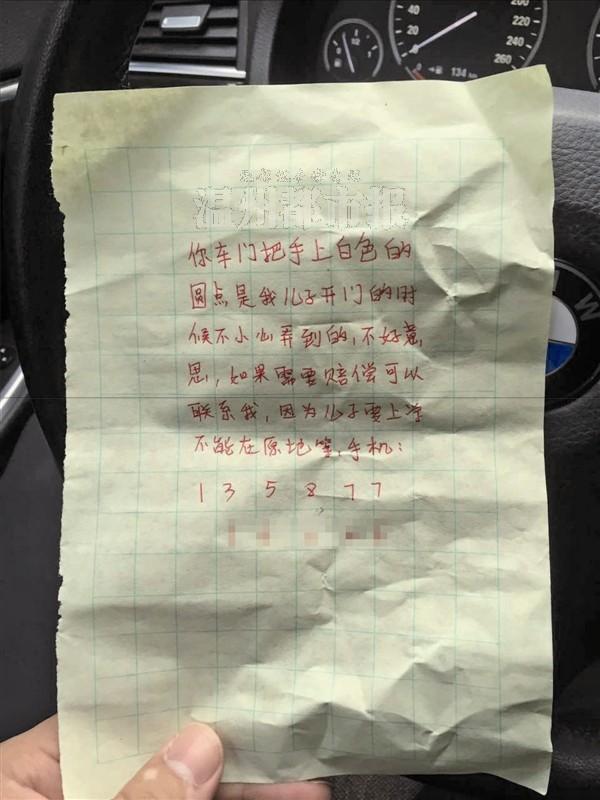 40
20
0
220
240
260
1/2
1
134 km
W
温州都市报
你车门把手上白色的
圆点是我儿子开门的时
候不小心弄到的,不好意
思,如果需要赔偿可以
联系我,因为儿子要上学
不能在原地等,手机:
1 3 5 8 7 7